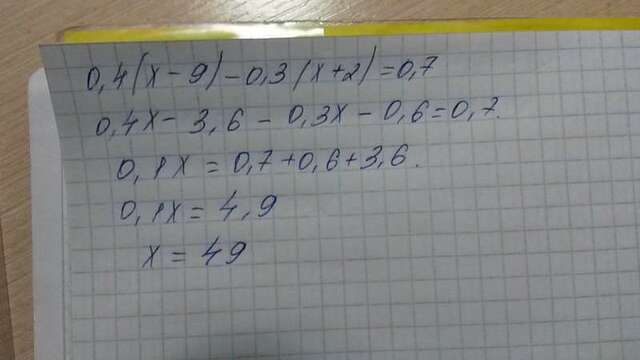 0,4(x-9)-0,3(x+2)=0,7
0,4x-3,6-0,3x-0,6=0,7.
0,1x=0,7+0,6+3,6.
0,1x=4,9
x=49